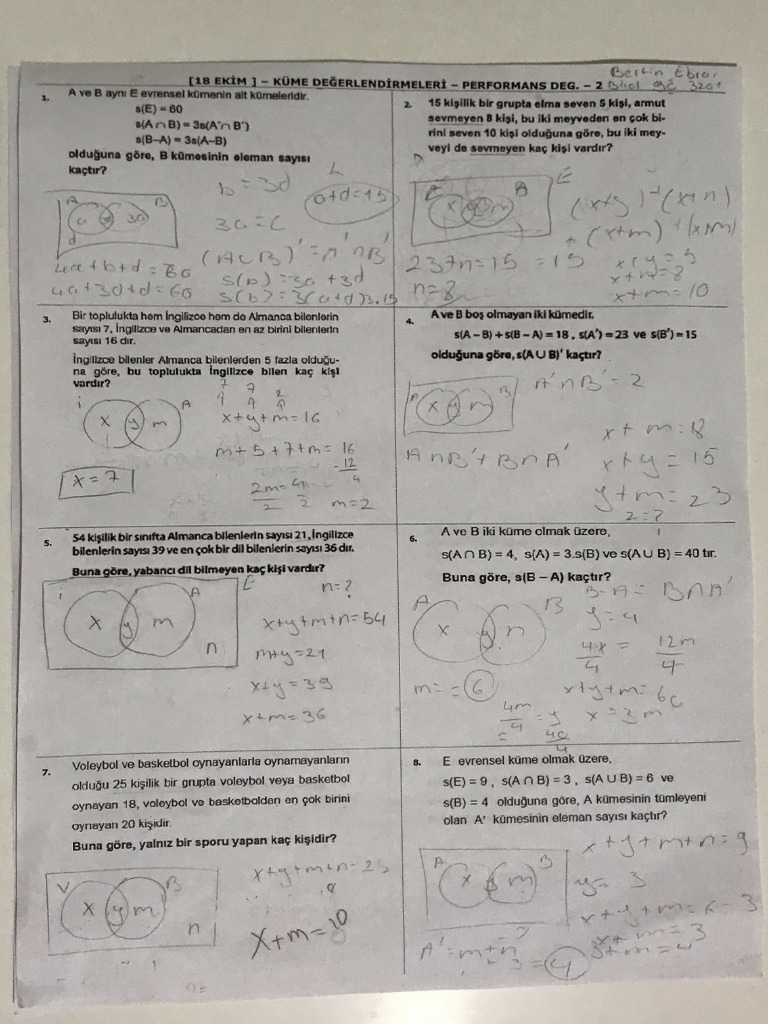 [18 EKİM ] – KÜME DEĞERLENDİRMELERİ – PERFORMANS DEG. – 2
1. A ve B aynı E evrensel kümenin alt kümeleridir.
s(E) = 60
s(A∩B) = 3s(A'∩B')
s(B–A) = 3s(A–B)
olduğuna göre, B kümesinin eleman sayısı
kaçtır?
b = 3d
a+d=15
3a = c
A B
a 3a
d
4a+b+d=60
4a+3d+d=60
(A∪B)' = A'∩B'
s(b) = 3a+3d
s(b) = 3(a+d) 3.15
2. 15 kişilik bir grupta elma seven 5 kişi, armut
sevmeyen 8 kişi, bu iki meyveden en çok bi-
rini seven 10 kişi olduğuna göre, bu iki mey-
veyi de sevmeyen kaç kişi vardır?
E A E
x y m
(x+y) + (x+n)
+ (x+m) + (x+m)
23+n=15 = 15
n=8
x+y=5
x+n=8
x+m=10
3. Bir toplulukta hem İngilizce hem de Almanca bilenlerin
sayısı 7, İngilizce ve Almancadan en az birini bilenlerin
sayısı 16 dır.
İngilizce bilenler Almanca bilenlerden 5 fazla olduğu-
na göre, bu toplulukta İngilizce bilen kaç kişi
vardır?
7 7 2
i A
x y m
x+y+m=16
m+5+7+m=16
-12
4
2m=4
2 2
m=2
x=7
4. A ve B boş olmayan iki kümedir.
s(A – B) + s(B – A) = 18 , s(A') = 23 ve s(B') = 15
olduğuna göre, s(A ∪ B)' kaçtır?
A B
x y m
A'∩B' = 2
A∩B' + B∩A'
x+m=18
x+y=15
y+m=23
2=?
5. 54 kişilik bir sınıfta Almanca bilenlerin sayısı 21, İngilizce
bilenlerin sayısı 39 ve en çok bir dil bilenlerin sayısı 36 dır.
Buna göre, yabancı dil bilmeyen kaç kişi vardır?
i A E
x y m n
n=?
x+y+m+n=54
m+y=21
x+y=39
x+m=36
6. A ve B iki küme olmak üzere,
s(A∩B) = 4, s(A) = 3.s(B) ve s(A∪B) = 40 tır.
Buna göre, s(B – A) kaçtır?
B-A = B∩A'
A B
x y n
y=4
4x = 12m
4 4
m= =6
x+y+m=
x=3m
4m = y
4
7. Voleybol ve basketbol oynayanlarla oynamayanların
olduğu 25 kişilik bir grupta voleybol veya basketbol
oynayan 18, voleybol ve basketboldan en çok birini
oynayan 20 kişidir.
Buna göre, yalnız bir sporu yapan kaç kişidir?
V B
x y m n
x+y+m+n=25
x+m=10
8. E evrensel küme olmak üzere,
s(E) = 9 , s(A∩B) = 3 , s(A∪B) = 6 ve
s(B) = 4 olduğuna göre, A kümesinin tümleyeni
olan A' kümesinin eleman sayısı kaçtır?
A B
x y m
x+y+m+n=9
y= 3
x+y+m=6-3
x+m=3
3+m=4
A'=m+n
3=4